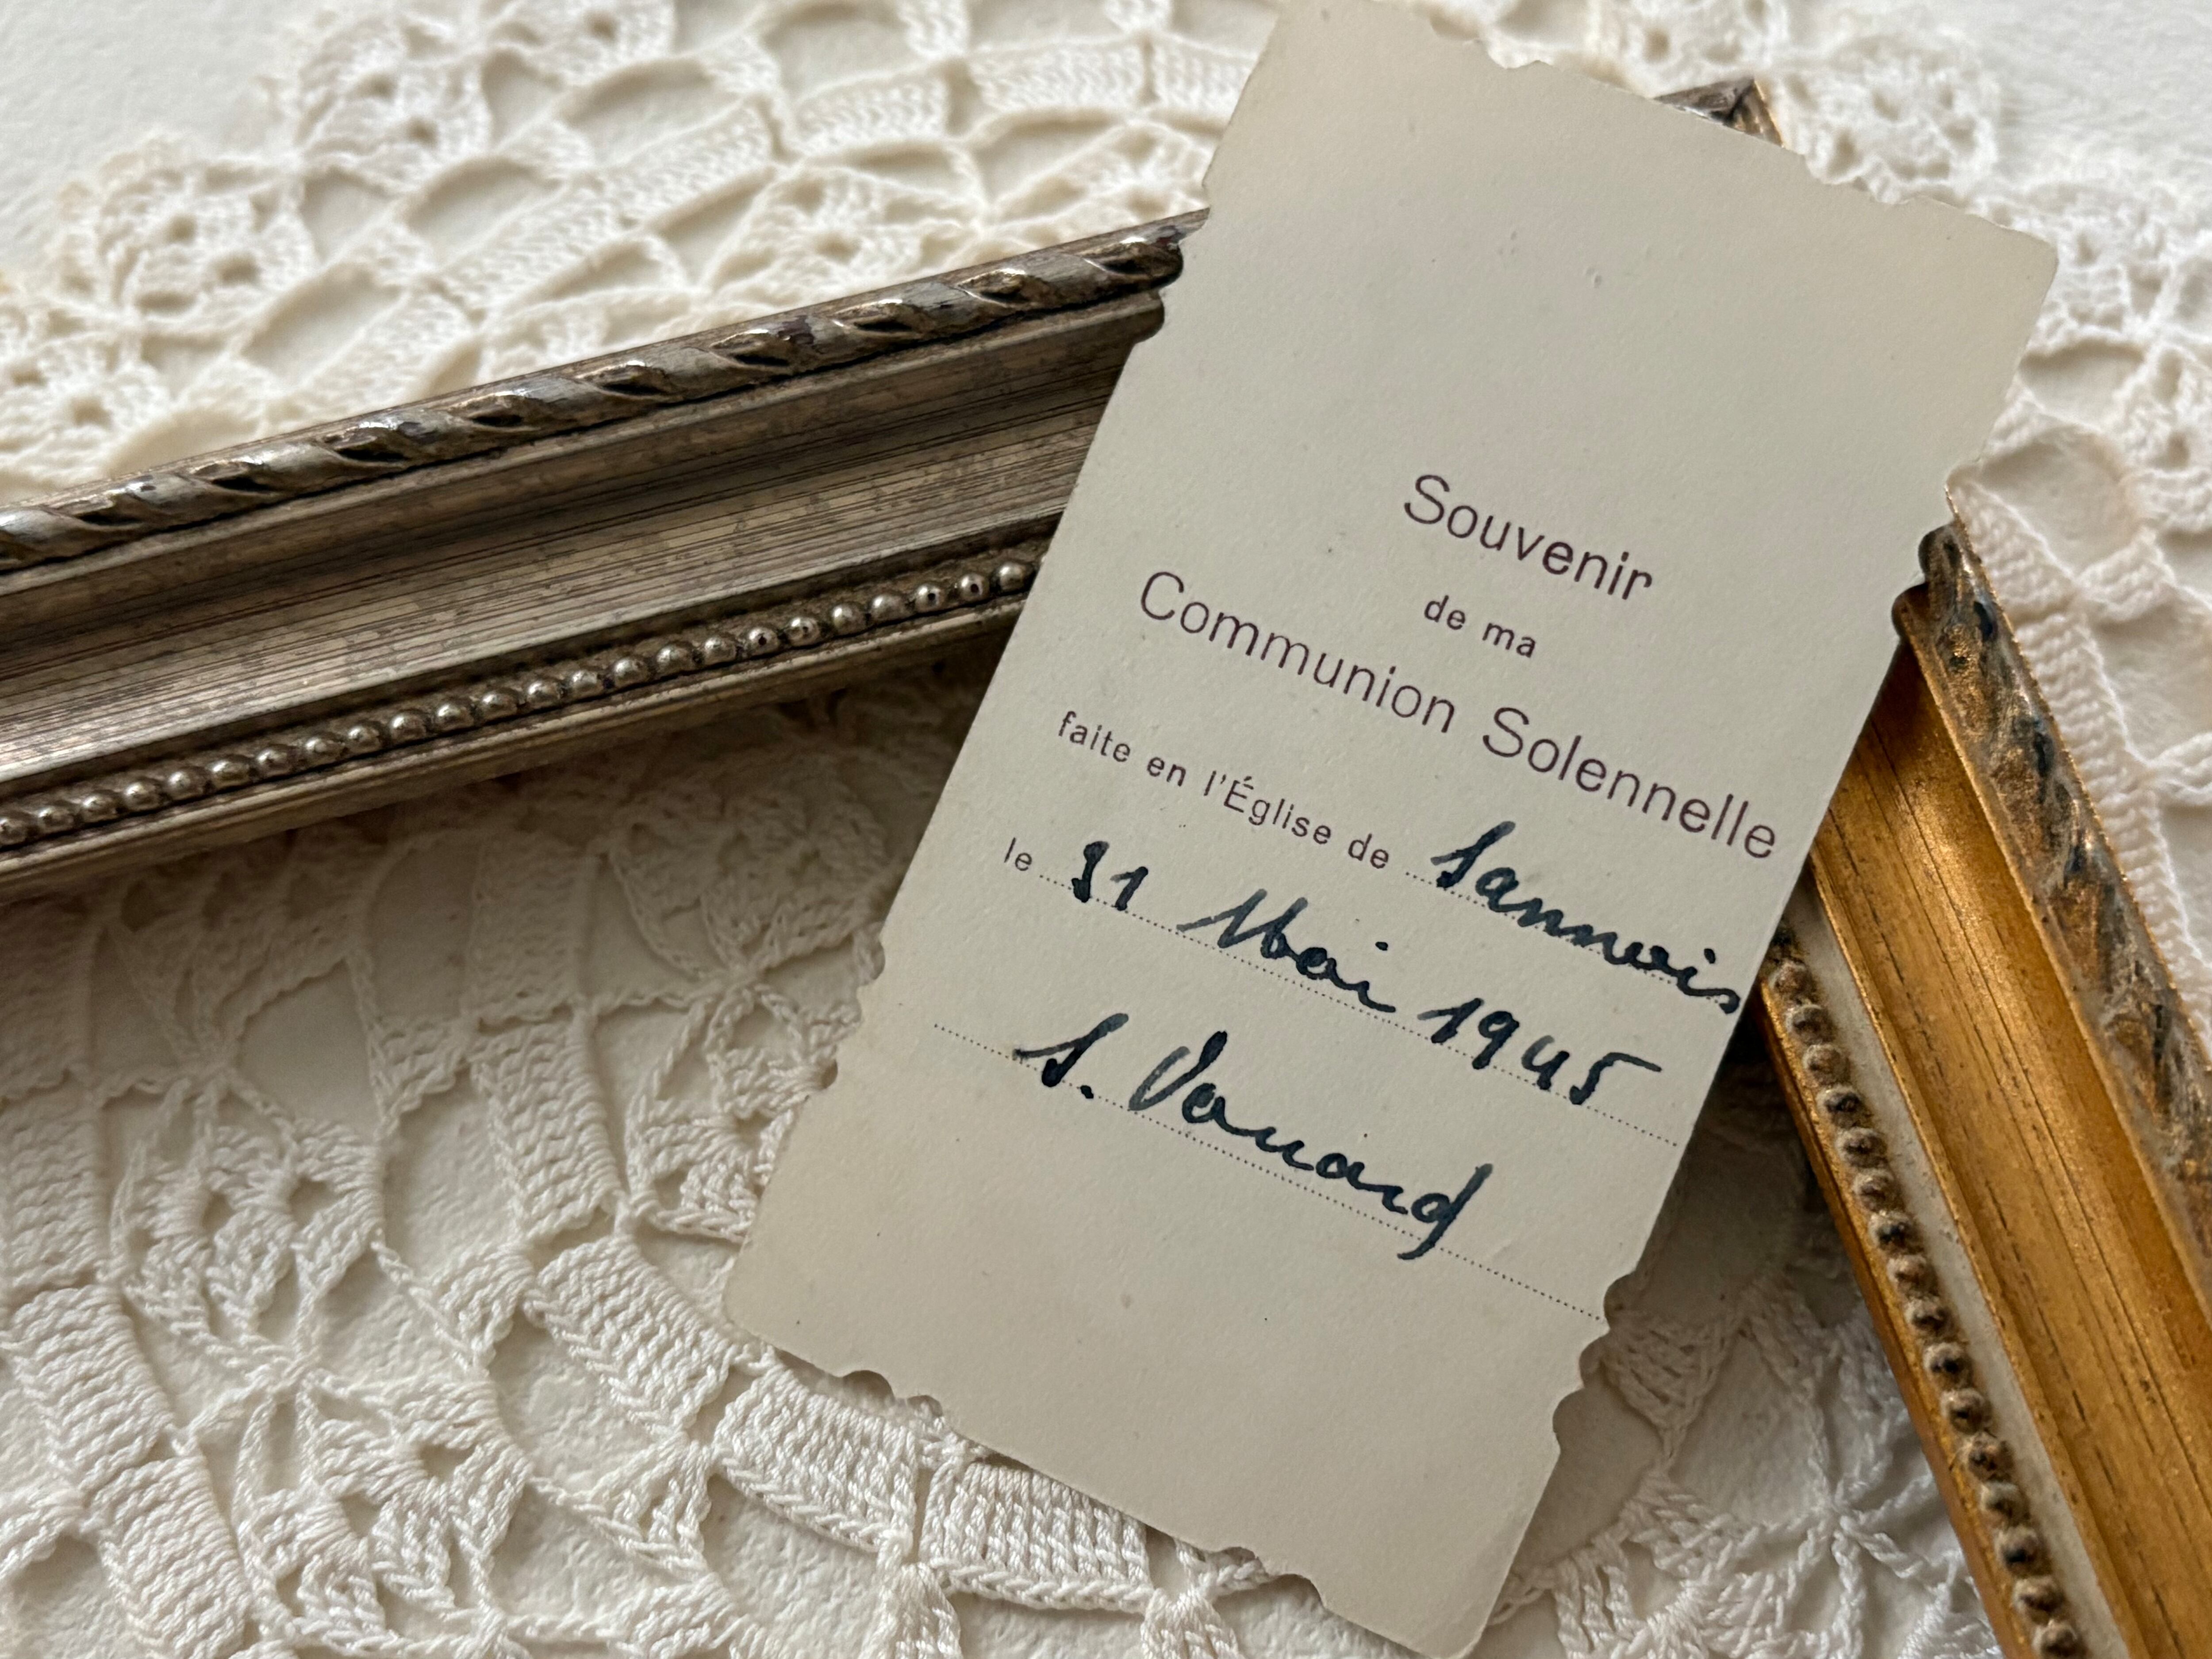 Souvenir
de ma
Communion Solennelle
faite en l'Église de Sannois
le 31 Mai 1945
S. Vouard